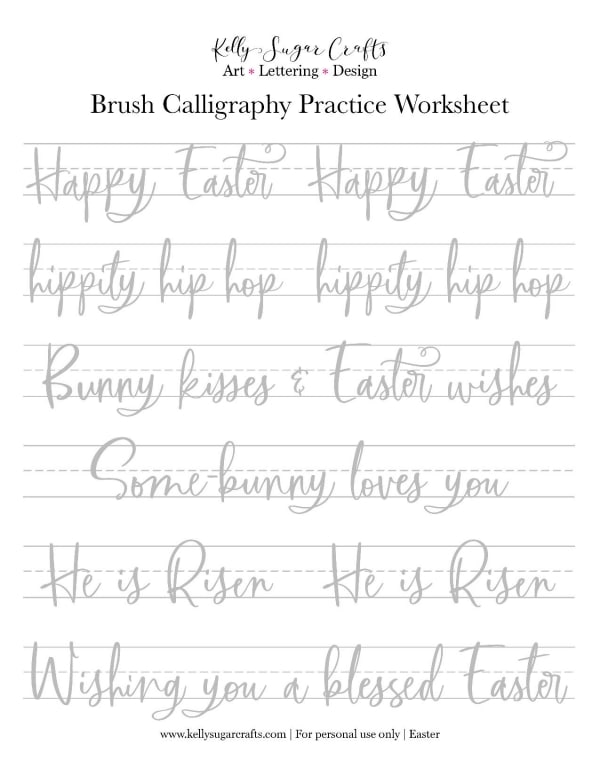 Kelly Sugar Crafts
Art * Lettering * Design
Brush Calligraphy Practice Worksheet
Happy Easter Happy Easter
hippity hip hop hippity hip hop
Bunny kisses & Easter wishes
Some-bunny loves you
He is Risen He is Risen
Wishing you a blessed Easter
www.kellysugarcrafts.com | For personal use only | Easter